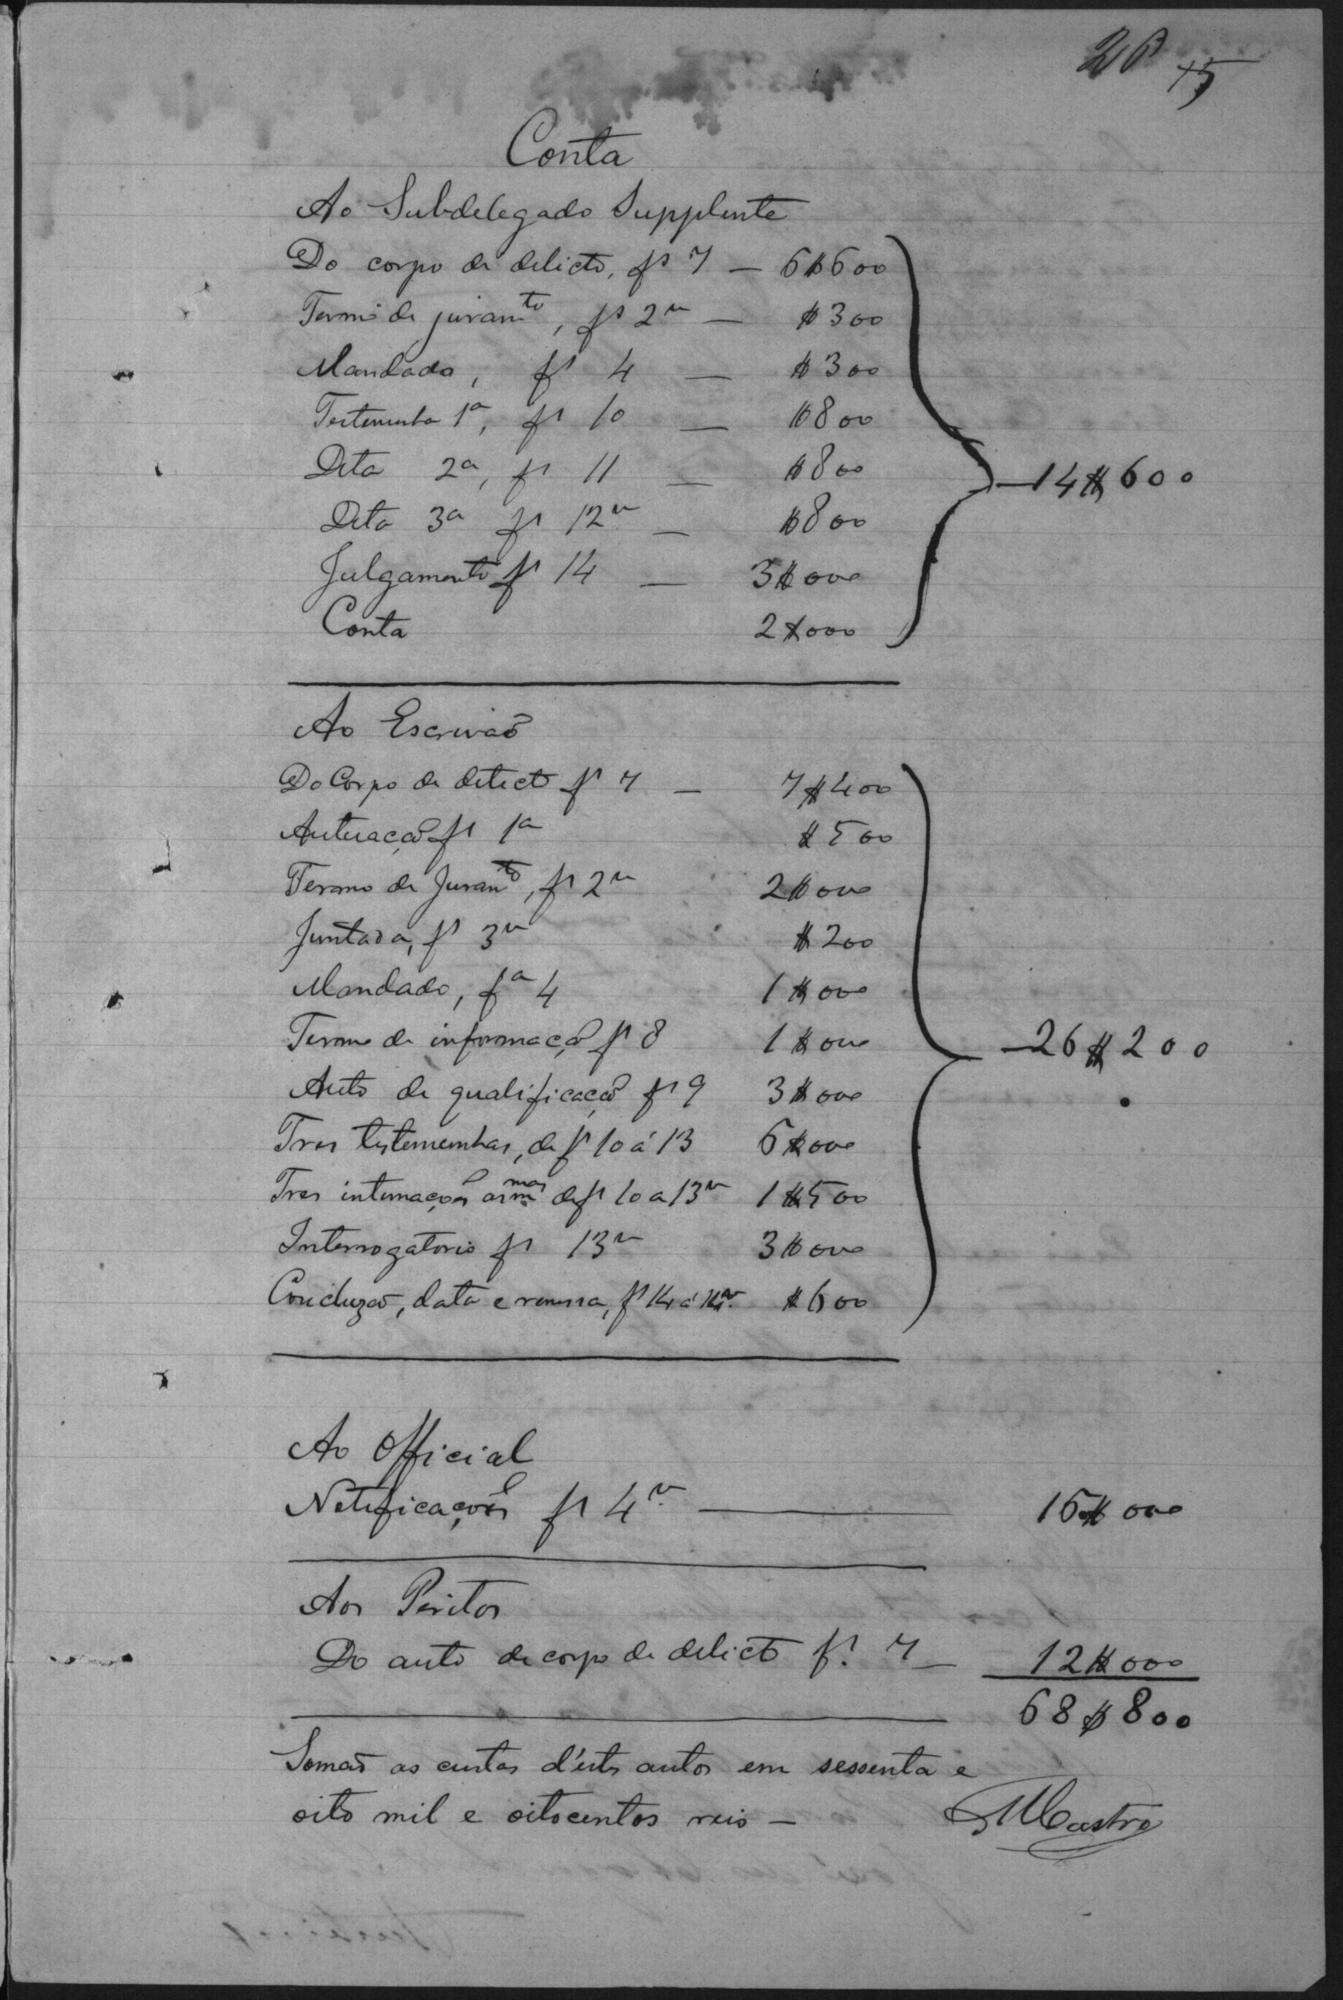 15
Conta
Ao Subdelegado Supplente
Do corpo de delicto, fs 7 — 6$600
Termo de juramto, fs 2v — $300
Mandado, fs 4 — $300
Testemunha 1a, fs 10 — $800
Dita 2a, fs 11 — $800
Dita 3a fs 12v — $800
Julgamento fs 14 — 3$000
Conta 2$000
— 14$600
Ao Escrivão
Do Corpo de delicto fs 7 — 7$400
Autuação fs 1a $500
Termo de Juramto, fs 2v 2$000
Juntada, fs 3v $200
Mandado, fa 4 1$000
Termo de informação fs 8 1$000
Auto de qualificação fs 9 3$000
Tres testemunhas, de fs 10 á 13 6$000
Tres intimações ás mmas de fs 10 a 13v 1$500
Interrogatorio fs 13v 3$000
Concluzão, data e remessa, fs 14 á 14v. $600
— 26$200
Ao Official
Notificações fs 4v. — 16$000
Aos Peritos
Do auto de corpo de delicto f. 7 — 12$000
68$800
Somão as custas d'éstes autos em sessenta e
oito mil e oitocentos reis —
MCastro